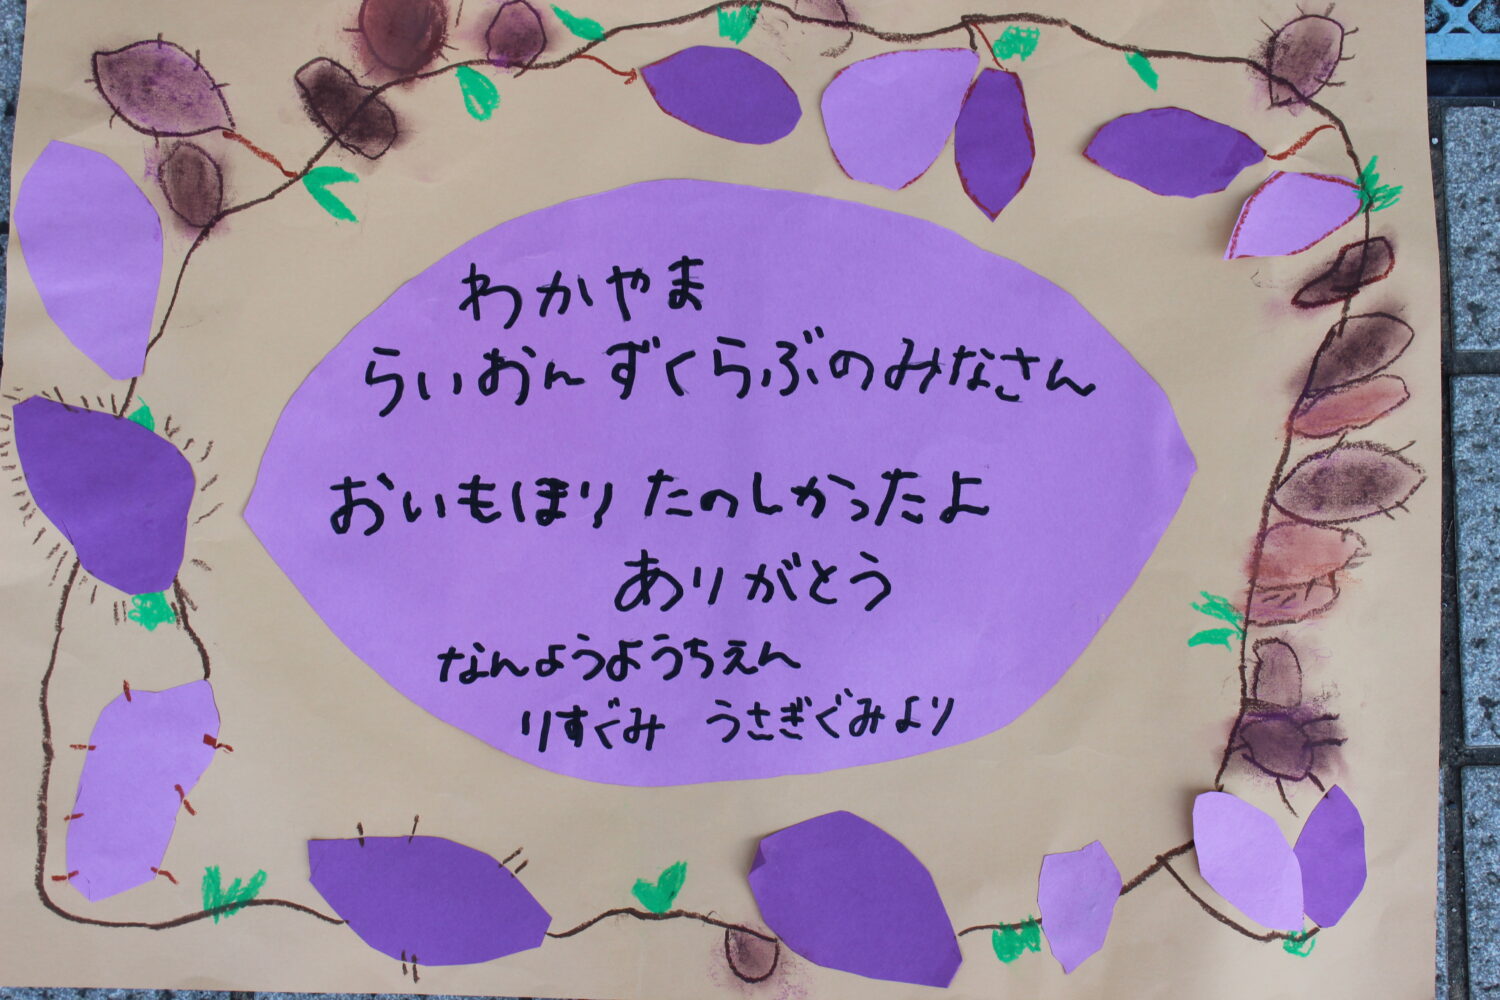 わかやま
らいおんずくらぶのみなさん
おいもほり たのしかったよ
ありがとう
なんようようちえん
りすぐみ うさぎぐみより